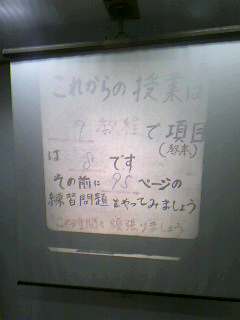 これからの授業は
9 で項目
は 8 です
その前に 95 ページの
練習問題をやってみましょう
頑張りましょう